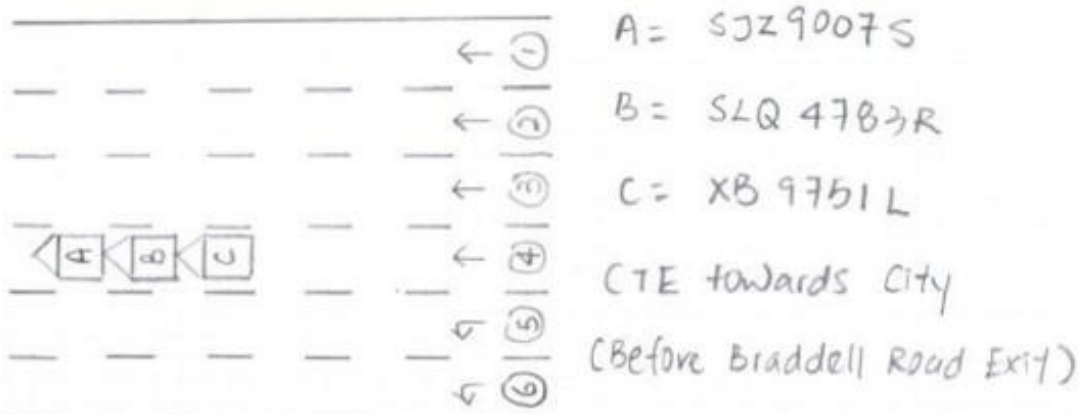 ①
②
③
④
⑤
⑥
A
B
C
A = SJZ9007S
B = SLQ 4783R
C = XB 9751L
CTE towards City
(Before Braddell Road Exit)